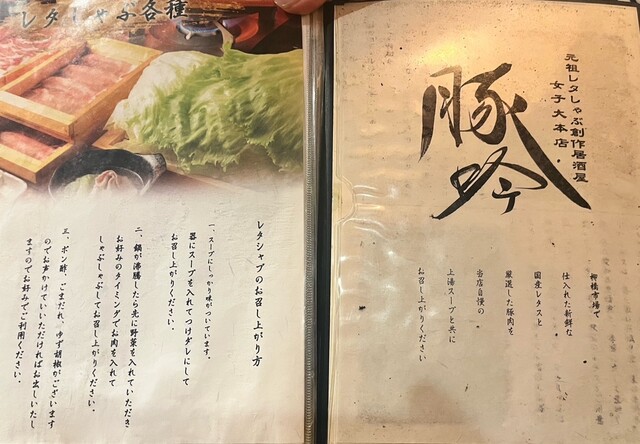 レタしゃぶ各種
レタシャブのお召し上がり方
一、スープにしっかり味がついています。
器にスープを入れてつけダレにして
お召し上がりください。
二、鍋が沸騰したら先に野菜を入れていただき
お好みのタイミングでお肉を入れて
しゃぶしゃぶしてお召し上がりください。
三、ポン酢、ごまだれ、ゆず胡椒がございます
のでお声かけていただければお出しいたし
ますのでお好みでご利用ください。
元祖レタしゃぶ創作居酒屋
女子大本店
豚吟
柳橋市場で
仕入れた新鮮な
国産レタスと
厳選した豚肉を
当店自慢の
上湯スープと共に
お召し上がりください